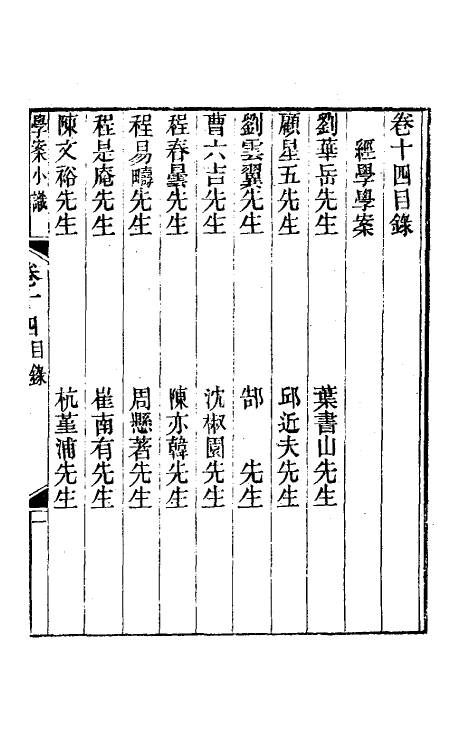 卷十四目錄
經學學案
劉華岳先生 葉書山先生
顧星五先生 邱近夫先生
劉雲翼先生 郜 先生
曹六吉先生 沈椒園先生
程春曇先生 陳亦韓先生
程易疇先生 周懸著先生
程是庵先生 崔南有先生
陳文裕先生 杭堇浦先生
學案小識 卷十四目錄 一